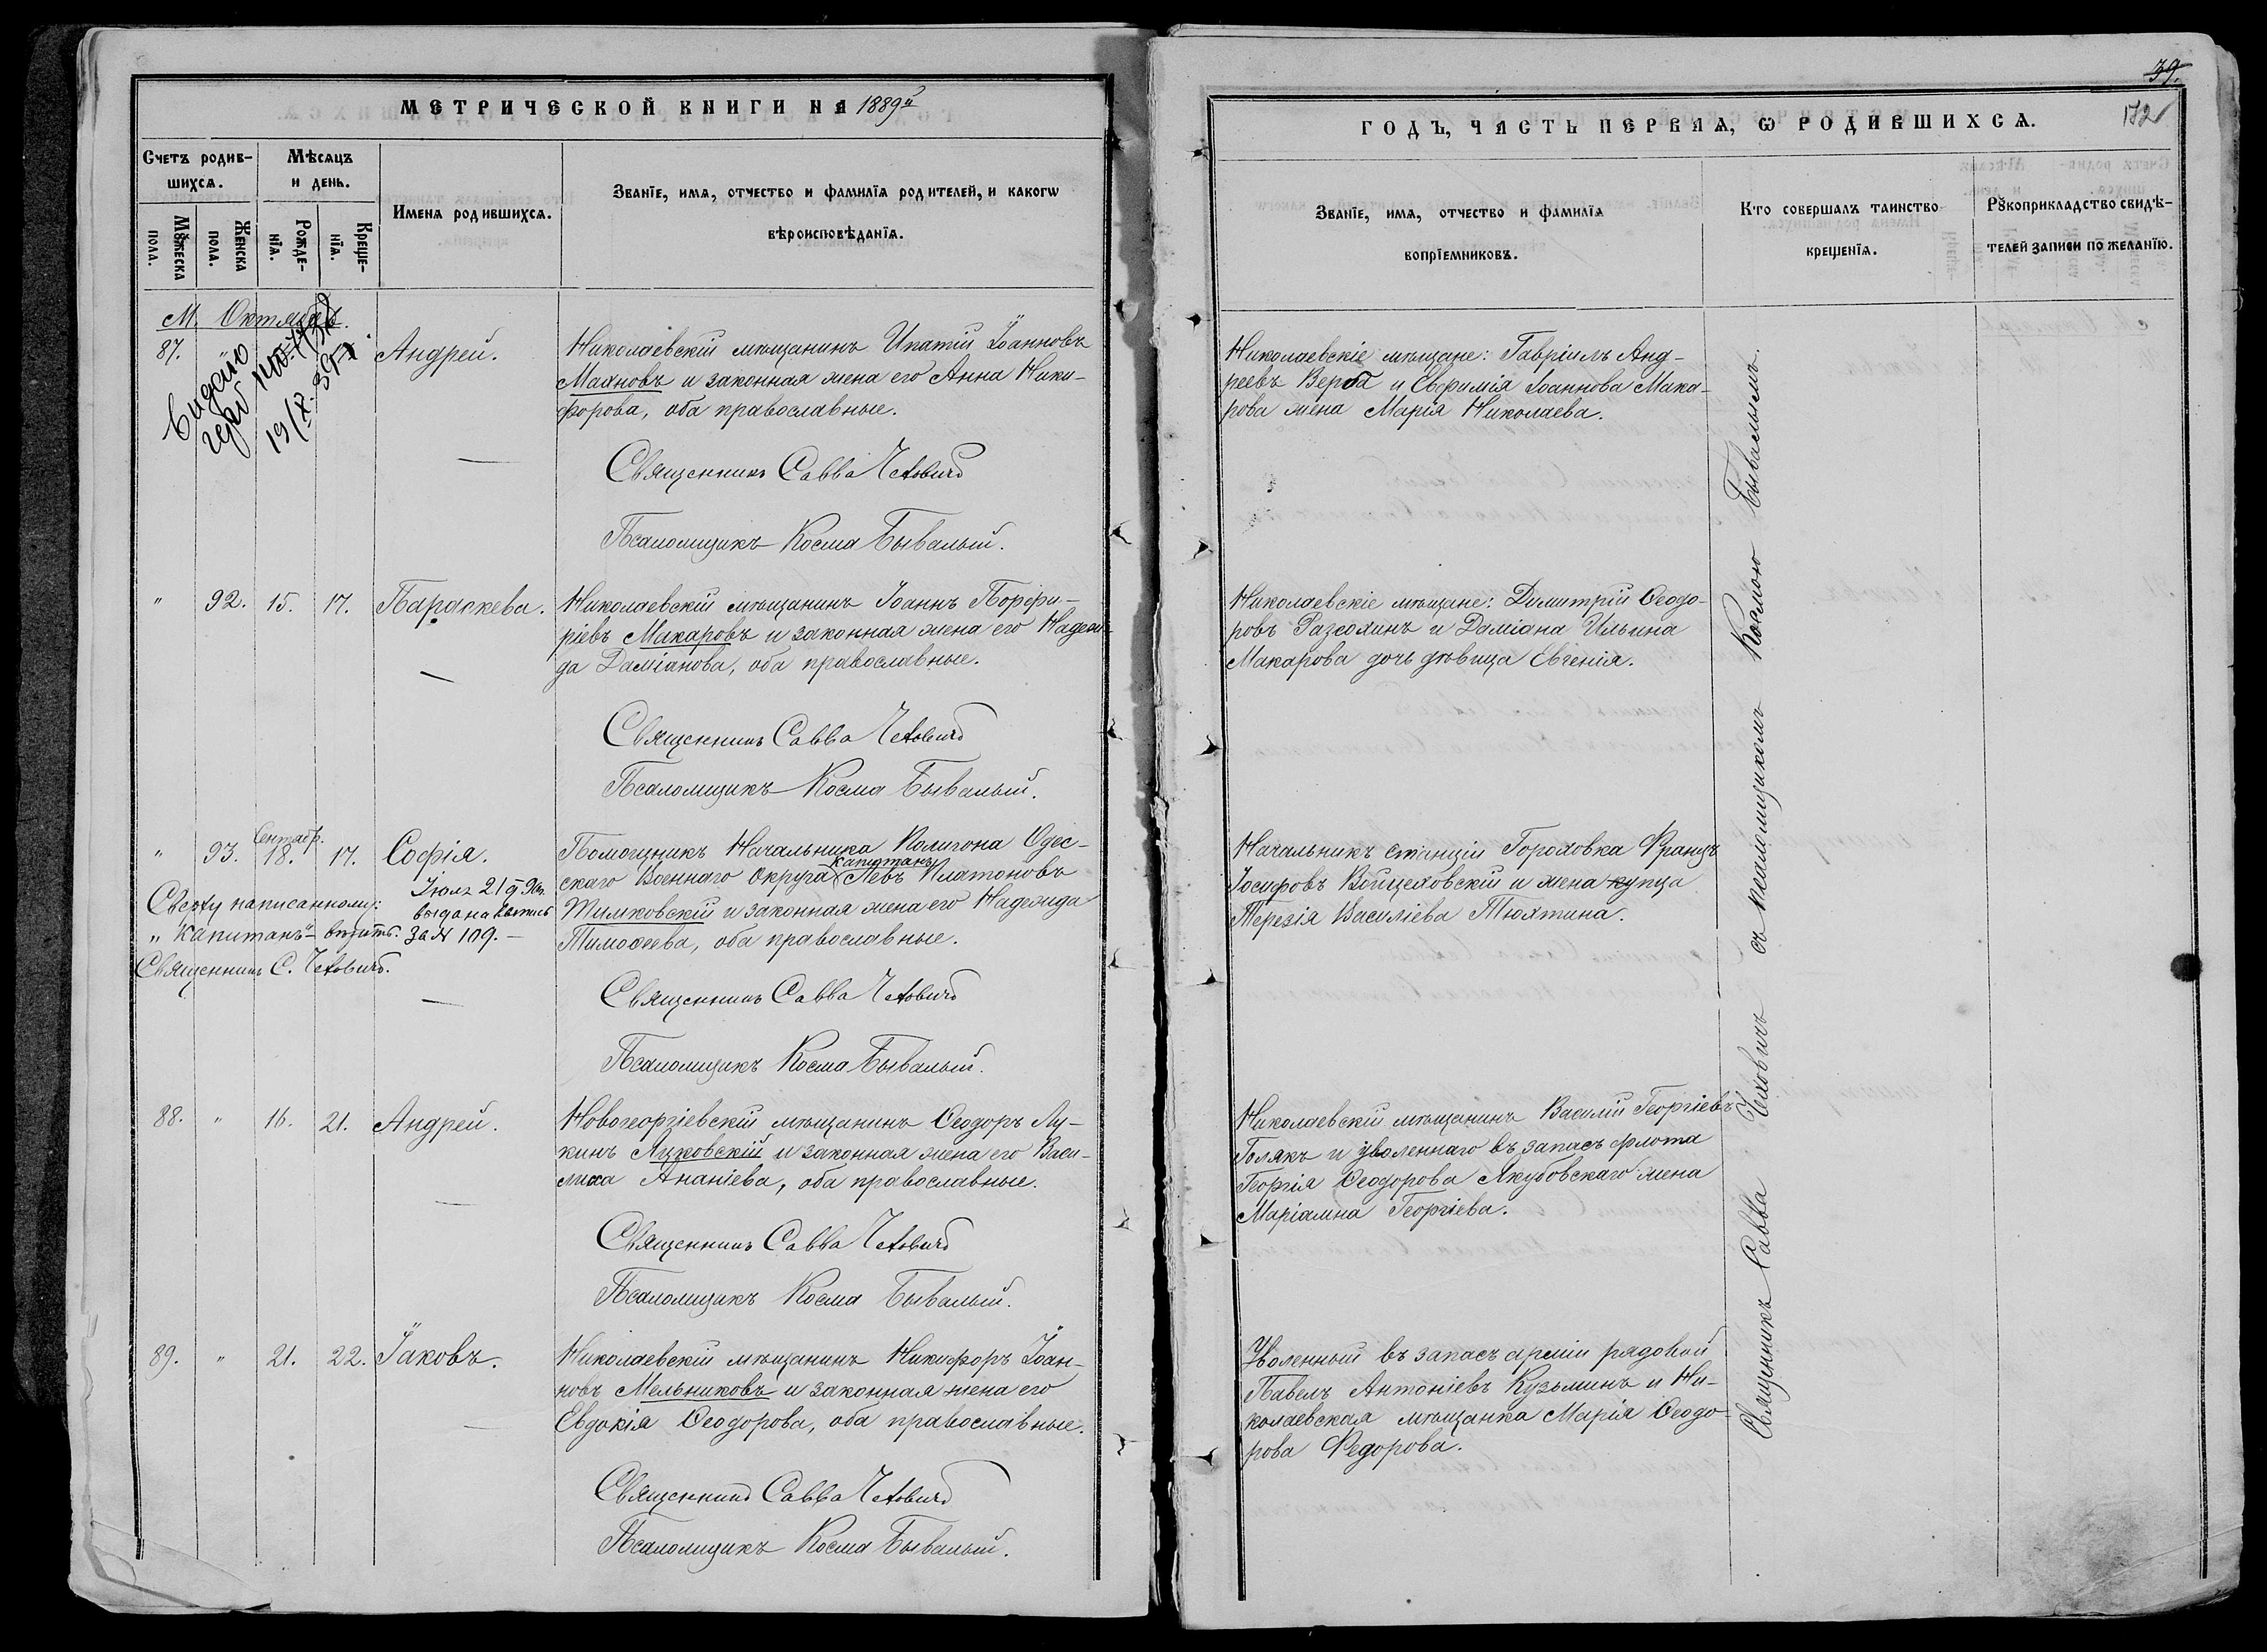 МЕТРИЧЕСКОЙ КНИГИ НА 1889й
Счетъ родив-
шихся.
Мѣсяцъ
и день.
Имена родившихся.
Званіе, имя, отчество и фамилія родителей, и какогѡ
вѣроисповѣданія.
Мꙋжеска
пола.
Женска
пола.
Рожде-
нія.
Креще-
нія.
М. Октябрь.
87.
Андрей.
Николаевскій мѣщанинъ Ипатій Іоанновъ
Махновъ и законная жена его Анна Ники-
форова, оба православные.
Священникъ Савва Чеховичъ
Псаломщикъ Косма Бывалый.
" 92. 15. 17. Параскева.
Николаевскій мѣщанинъ Іоаннъ Порфи-
ріевъ Макаровъ и законная жена его Надеж-
да Даміанова, оба православные.
Священникъ Савва Чеховичъ
Псаломщикъ Косма Бывалый.
Сентабр.
" 93. 18. 17. Софія.
Помощникъ Начальника Полигона Одес-
капитанъ
скаго Военнаго Округа Левъ Платоновъ
Тимковскій и законная жена его Надежда
Тимоѳеева, оба православные.
Сверху написанному:
"Капитанъ"- вѣрить.
Священникъ С. Чеховичъ.
Іюля 21 д.
выдана выпись
за № 109.-
Священникъ Савва Чеховичъ
Псаломщикъ Косма Бывалый.
88. " 16. 21. Андрей.
Новогеоргіевскій мѣщанинъ Ѳеодоръ Лу-
кинъ Яцковскій и законная жена его Васи-
лиса Ананіева, оба православные.
Священникъ Савва Чеховичъ
Псаломщикъ Косма Бывалый.
89. " 21. 22. Іаковъ.
Николаевскій мѣщанинъ Никифоръ Іоан-
новъ Мельниковъ и законная жена его
Евдокія Ѳеодорова, оба православные.
Священникъ Савва Чеховичъ
Псаломщикъ Косма Бывалый.
39.
172
ГОДЪ, ЧАСТЬ ПЕРВАЯ, Ѡ РОДИВШИХСЯ.
Званіе, имя, отчество и фамилія
воспріемниковъ.
Кто совершалъ таинство
крещенія.
Рꙋкоприкладство свидѣ-
телей записи по желанію.
Николаевскіе мѣщане: Гавріилъ Анд-
реевъ Верба и Евфимія Іоаннова Мака-
рова жена Марія Николаева.
Николаевскіе мѣщане: Димитрій Ѳеодо-
ровъ Разсохинъ и Даміана Ильина
Макарова дочь дѣвица Евгенія.
Начальникъ станціи Гороховка Францъ
Іосифовъ Войцеховскій и жена купца
Терезія Василіева Тюхтина.
Николаевскій мѣщанинъ Василій Георгіевъ
Голякъ и уволеннаго въ запасъ флота
Георгія Ѳеодорова Якубовскаго жена
Маріамна Георгіева.
Уволенный въ запасъ арміи рядовой
Павелъ Антоніевъ Кузьминъ и Ни-
колаевская мѣщанка Марія Ѳеодо-
рова Федорова.
Священникъ Савва Чеховичъ съ псаломщикомъ Космою Бывалымъ.